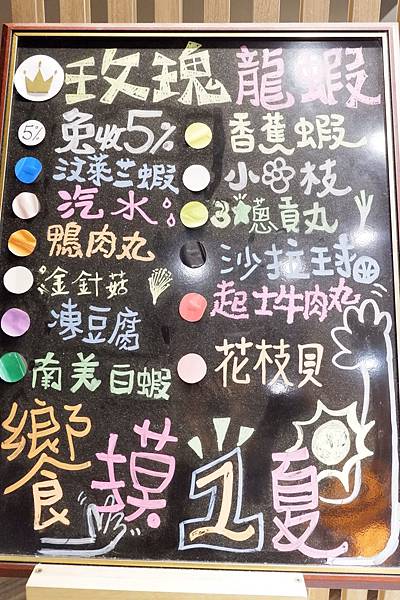 玫瑰龍蝦
5% 免收5%
香蕉蝦
汶萊藍蝦
小花枝
汽水
3星蔥貢丸
鴨肉丸
沙拉球
金針菇
起士牛肉丸
凍豆腐
花枝貝
南美白蝦
饗摸1夏